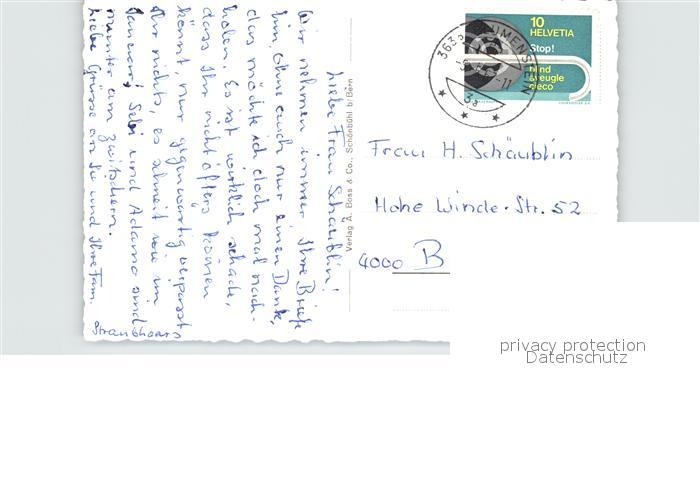 Liebe Frau Schäublin!
Wir nehmen immer Ihre Briefe
hin, ohne euch nur einen Dank,
das möchte ich doch mal nach-
holen. Es ist wirklich schade,
dass Ihr nicht öfters kommen
könnt, nur gegenwärtig verpasst
Ihr nichts, es schneit wie im
Januar! Sebi und Adamo sind
munter am zwitschern.
Liebe Grüsse an Sie und Ihre Fam.
Straubhaars
Verlag A. Boss & Co., Schönbühl b/Bern
10
HELVETIA
Stop!
blind
aveugle
cieco
Frau H. Schäublin
Hohe Winde-Str. 52
4000 B
privacy protection
Datenschutz